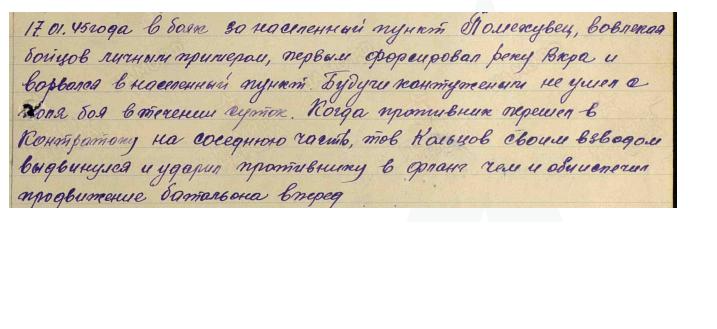 17.01.45 года в боях за населенный пункт Помехувец, вовлекая
бойцов личным примером, первым форсировал реку Вкра и
ворвался в населенный пункт. Будучи контуженым не ушел с
поля боя в течении суток. Когда противник перешел в
Контратаку на соседнюю часть, тов Кольцов своим взводом
выдвинулся и ударил противнику в фланг чем и обеспечил
продвижение батальона вперед